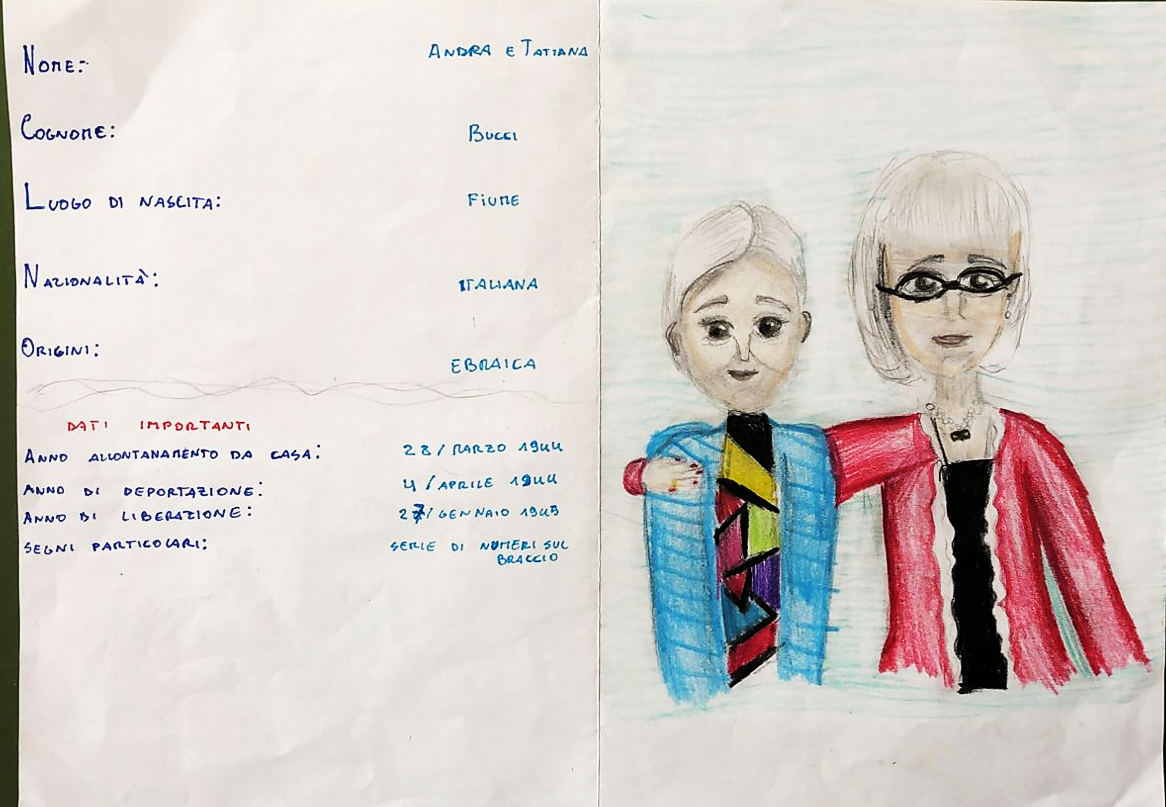 Nome: Andra e Tatiana
Cognome: Bucci
Luogo di nascita: Fiume
Nazionalità: Italiana
Origini: Ebraica
Dati importanti
Anno allontanamento da casa: 28/Marzo 1944
Anno di deportazione: 4/Aprile 1944
Anno di liberazione: 27/Gennaio 1945
Segni particolari: serie di numeri sul
braccio